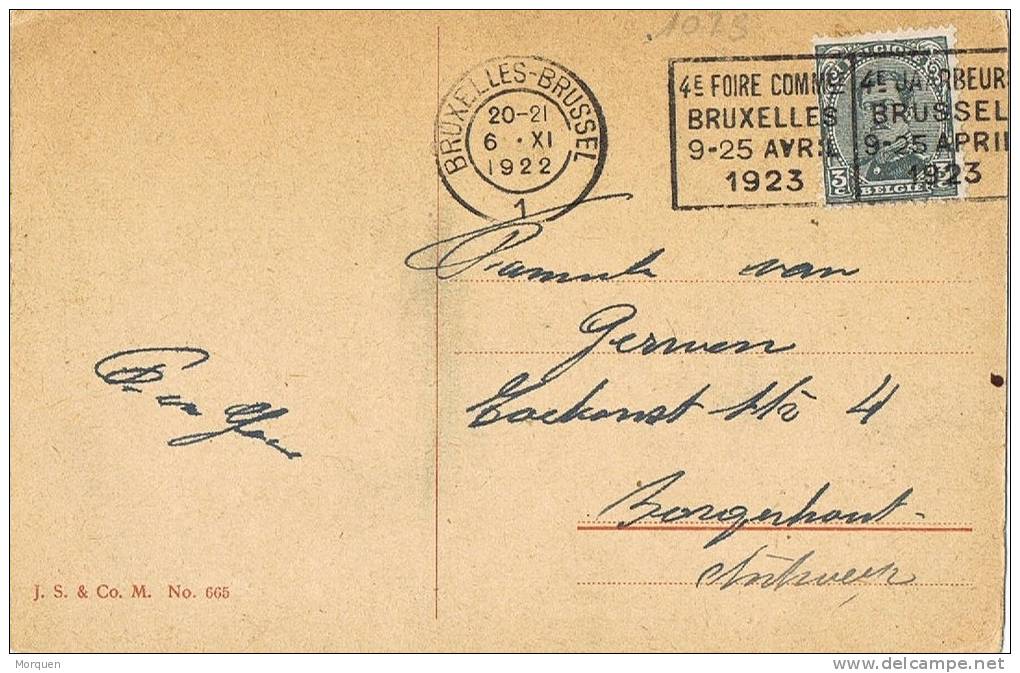 1073
BRUXELLES-BRUSSEL
20-21
6 • XI
1922
1
4E FOIRE COMME
BRUXELLES
9-25 AVRIL
1923
4E JAARBEURS
BRUSSEL
9-25 APRIL
1923
BELGIQUE
3c
BELGIË
van
Gerwen
4
Borgerhout-
Antwerp
J. S. & Co. M. No. 665
Morquen
delcampe.net